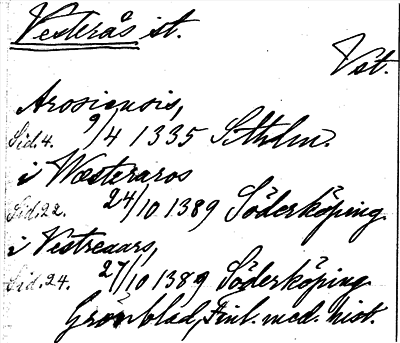 Vesterås st.
Vst.
Arosiensis,
Sid. 4. 9/4 1335 Sthlm.
i Wæsteraros
Sid. 22. 24/10 1389 Söderköping
i Vestreaars,
Sid. 24. 27/10 1389 Söderköping
Grönblad, Finl. med. hist.